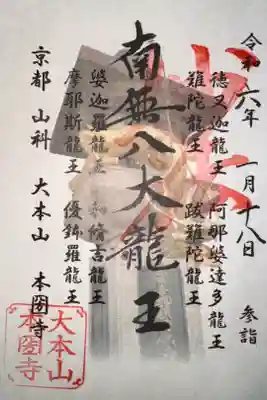 令和六年 一月十八日 参詣
徳叉迦龍王 阿那婆達多龍王
難陀龍王 跋難陀龍王
南無八大龍王
娑迦羅龍王 和脩吉龍王
摩那斯龍王 優鉢羅龍王
京都 山科 大本山 本圀寺
大本山
本圀寺